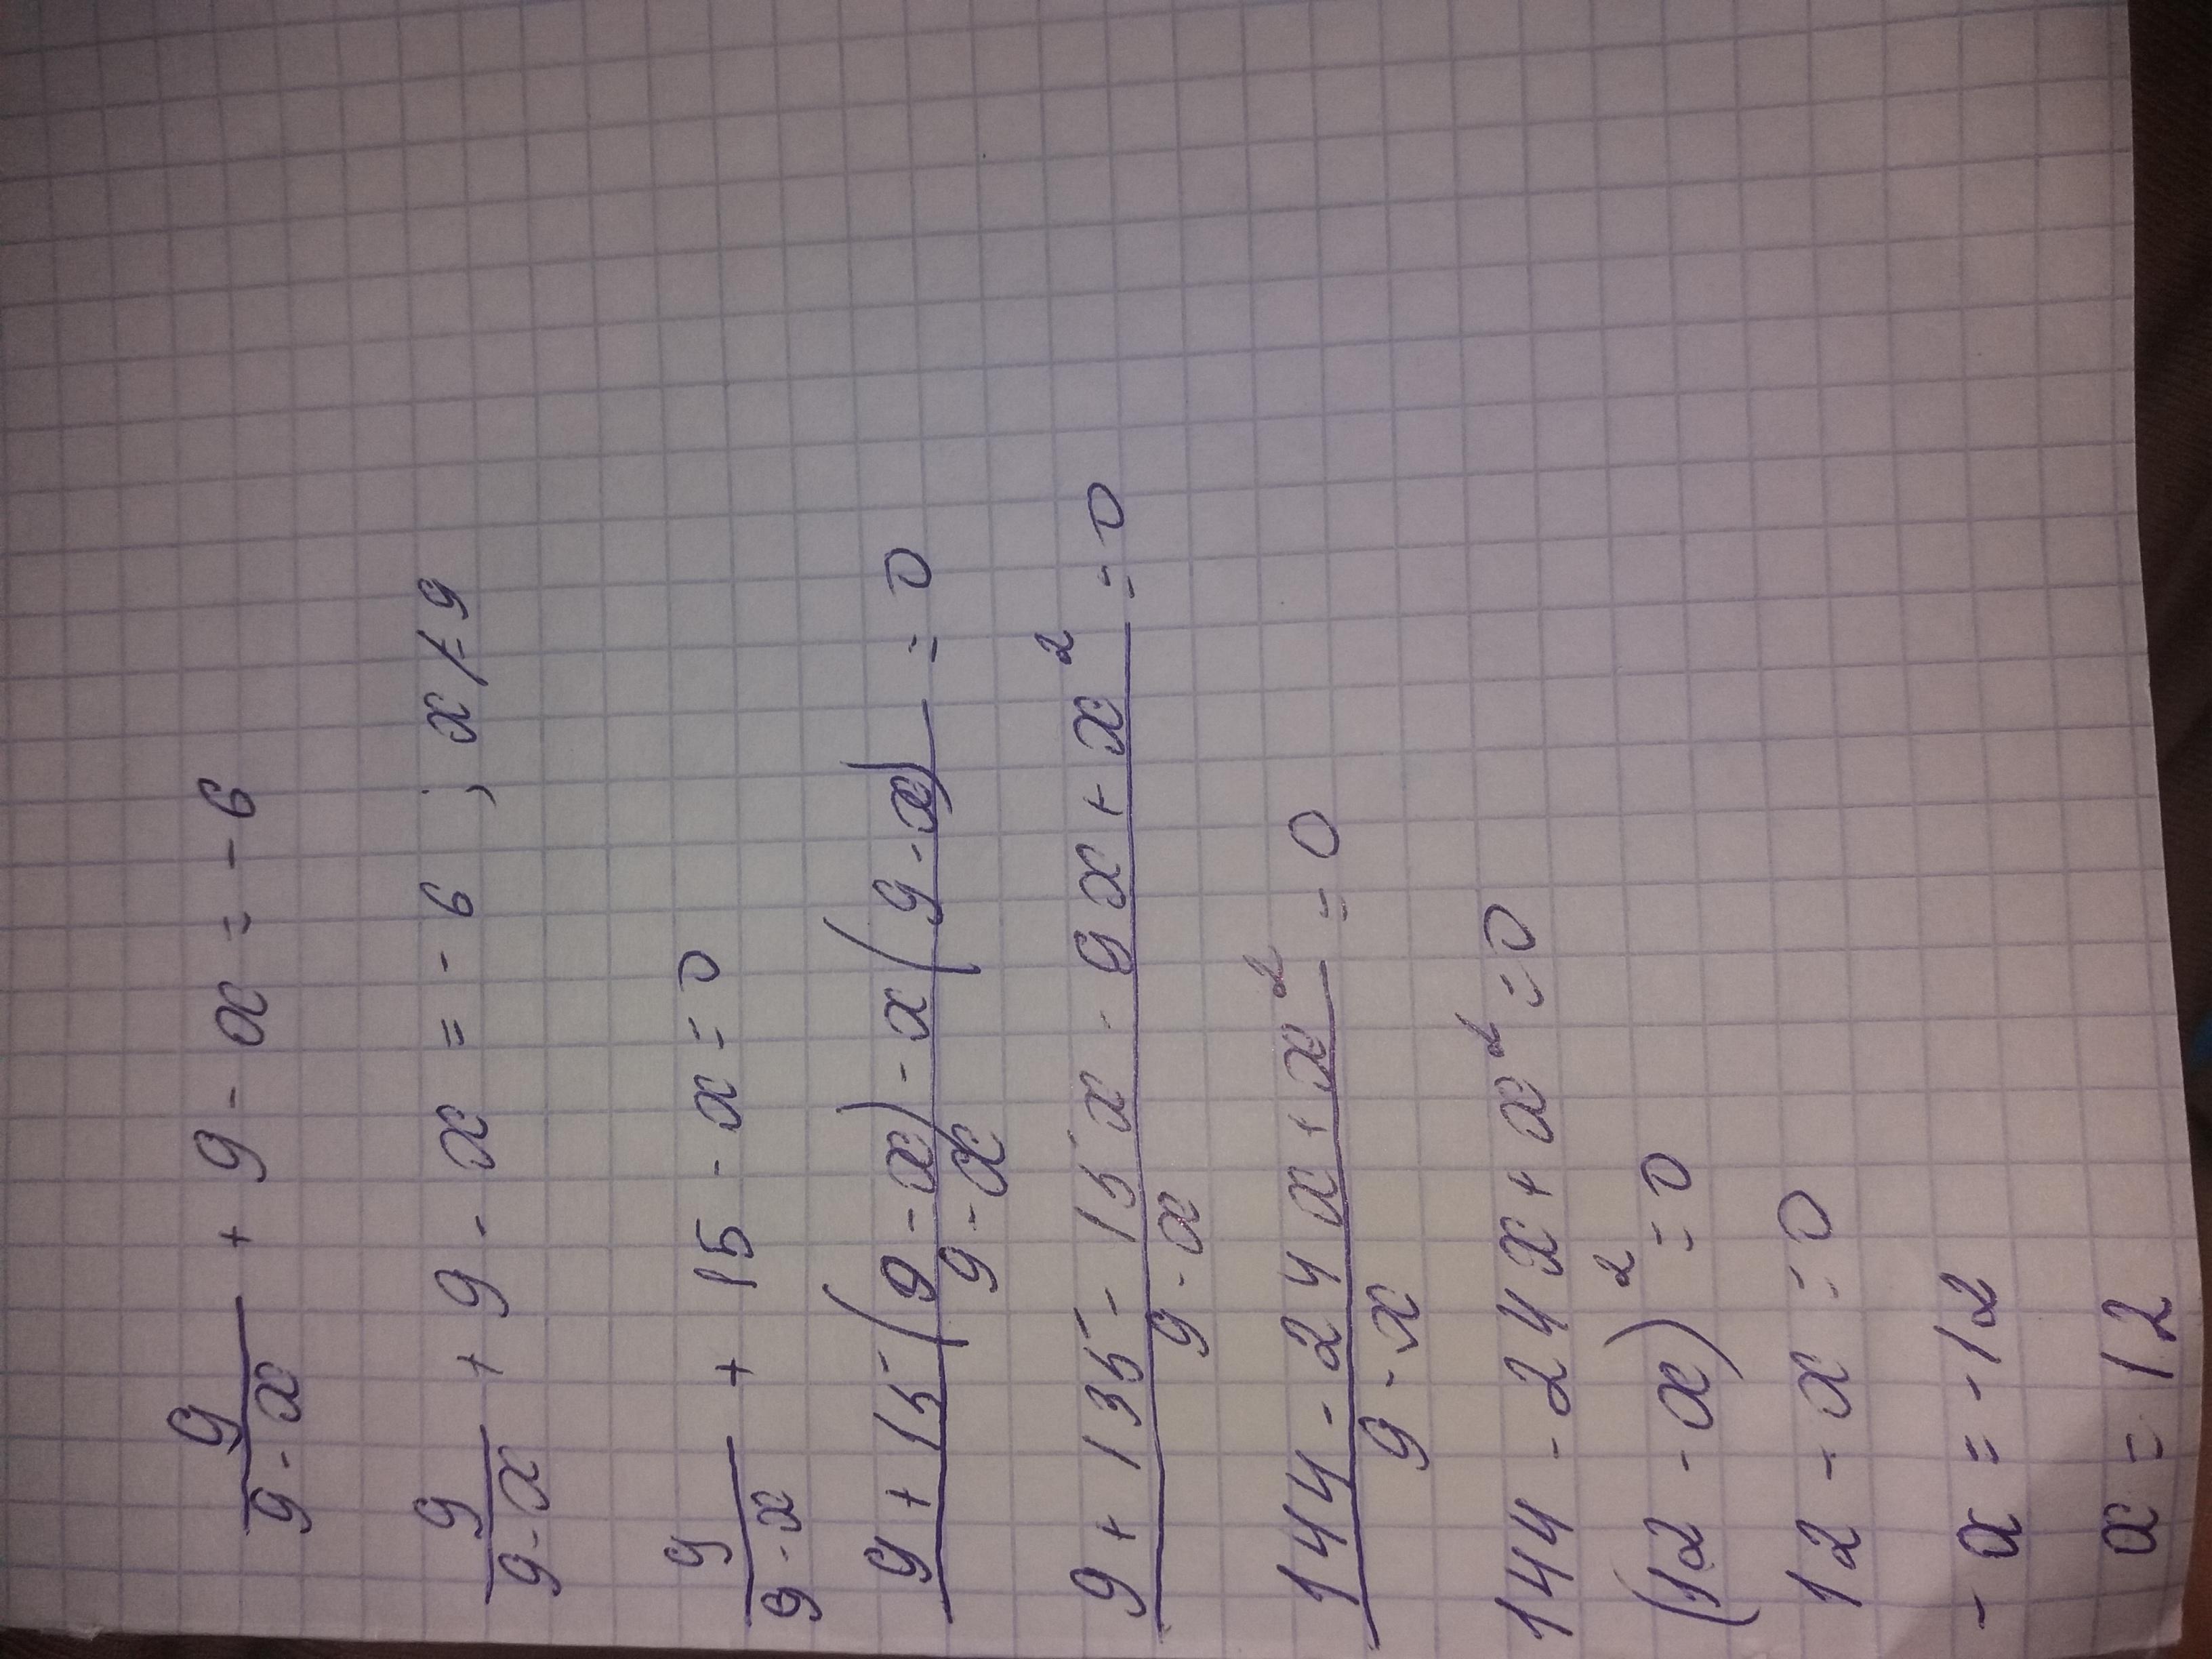 9/(9-x) + 9 - x = -6
9/(9-x) + 9 - x = -6 ; x ≠ 9
9/(9-x) + 15 - x = 0
(9 + 15(9-x) - x(9-x))/(9-x) = 0
(9 + 135 - 15x - 9x + x²)/(9-x) = 0
(144 - 24x + x²)/(9-x) = 0
144 - 24x + x² = 0
(12 - x)² = 0
12 - x = 0
-x = -12
x = 12